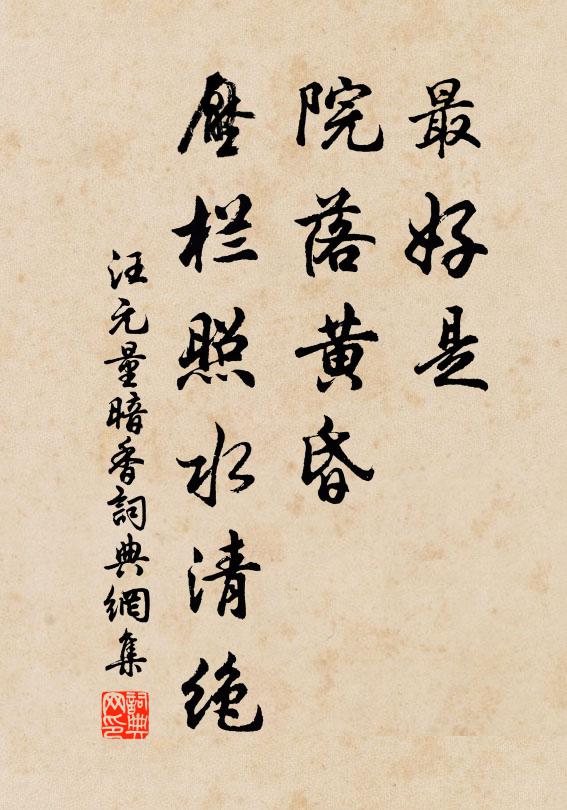 最好是
院落黄昏
压栏照水清绝
汪元量暗香詞典網集
詞典网印